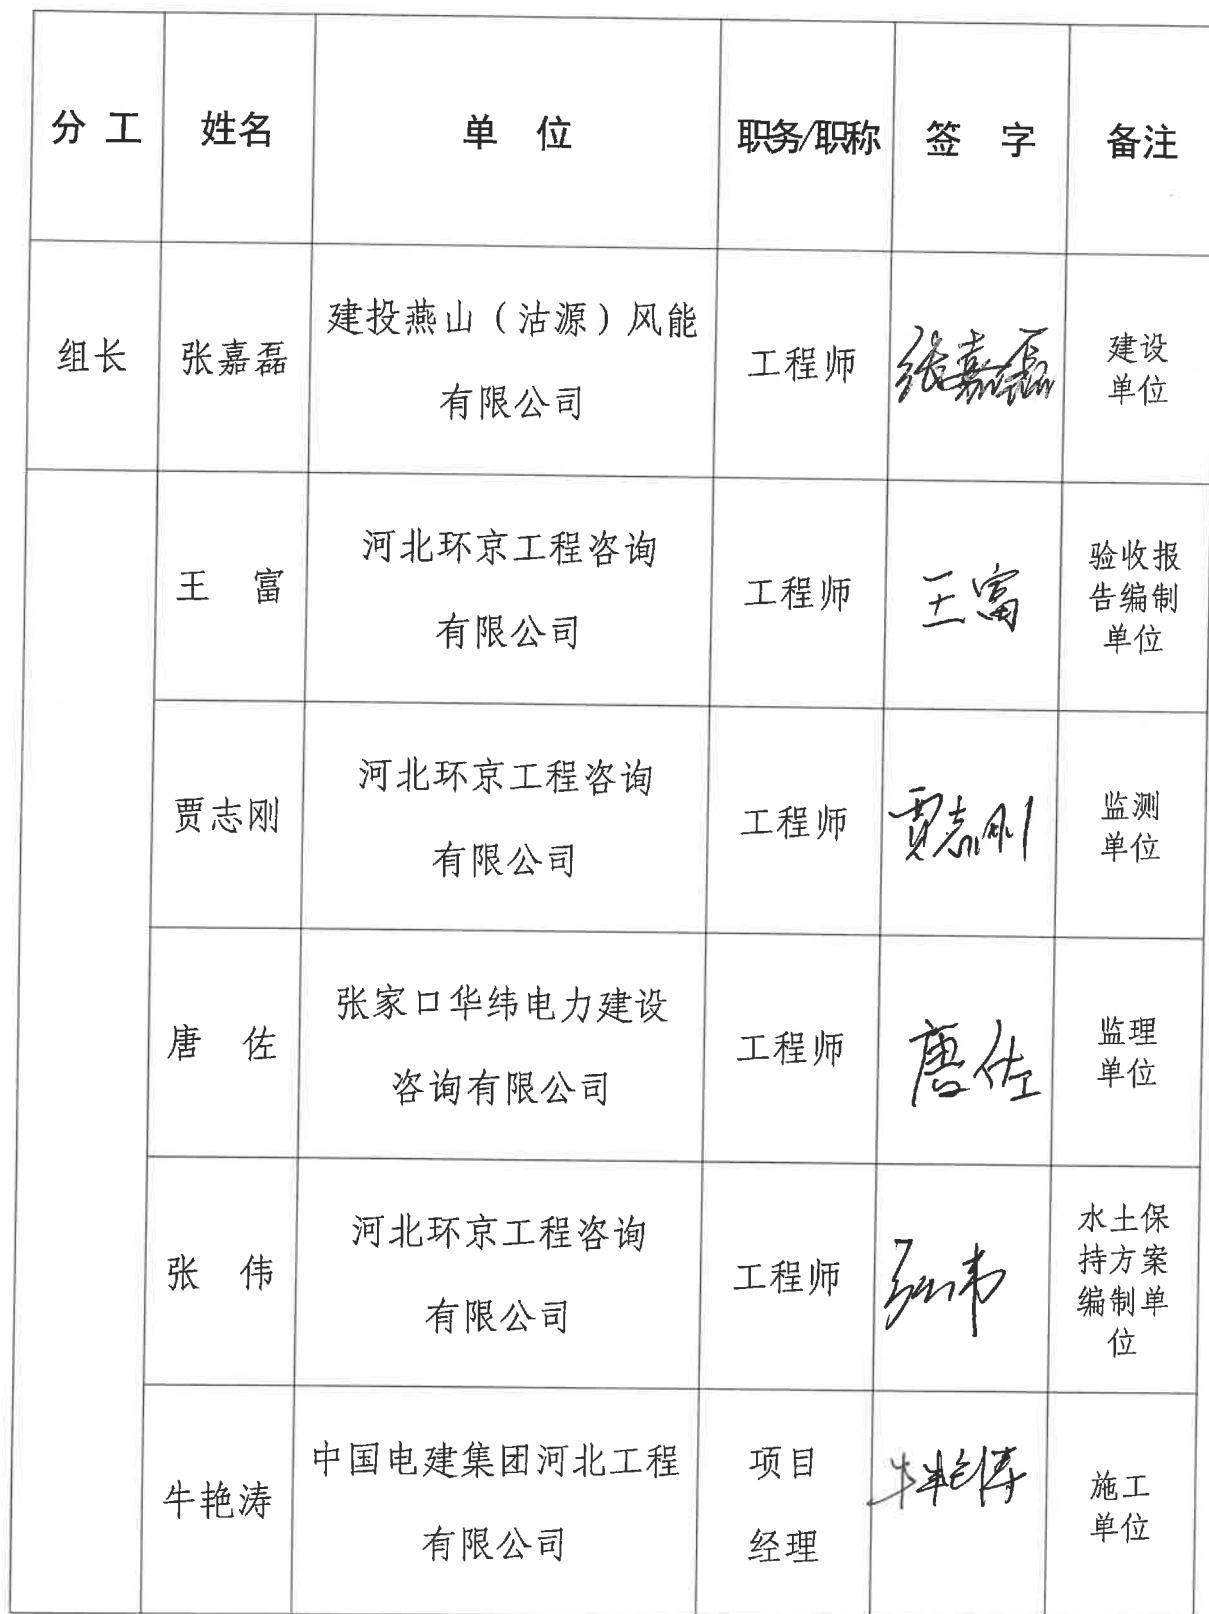 分 工 姓名 单 位 职务/职称 签 字 备注
组长 张嘉磊 建投燕山（沽源）风能
有限公司 工程师 张嘉磊 建设
单位
王 富 河北环京工程咨询
有限公司 工程师 王富 验收报
告编制
单位
贾志刚 河北环京工程咨询
有限公司 工程师 贾志刚 监测
单位
唐 佐 张家口华纬电力建设
咨询有限公司 工程师 唐佐 监理
单位
张 伟 河北环京工程咨询
有限公司 工程师 张伟 水土保
持方案
编制单
位
牛艳涛 中国电建集团河北工程
有限公司 项目
经理 牛艳涛 施工
单位